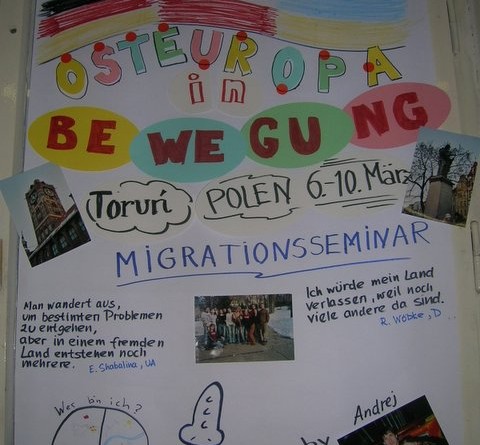 OSTEUROPA
in
BEWEGUNG
Toruń POLEN 6.-10. März
MIGRATIONSSEMINAR
Man wandert aus,
um bestimten Problemen
zu entgehen,
aber in einem fremden
Land entstehen noch
mehrere. E. Shabalina, UA
Ich würde mein Land
verlassen, weil noch
viele andere da sind.
R. Wöbke, D
Wer bin ich?
Andrej
by